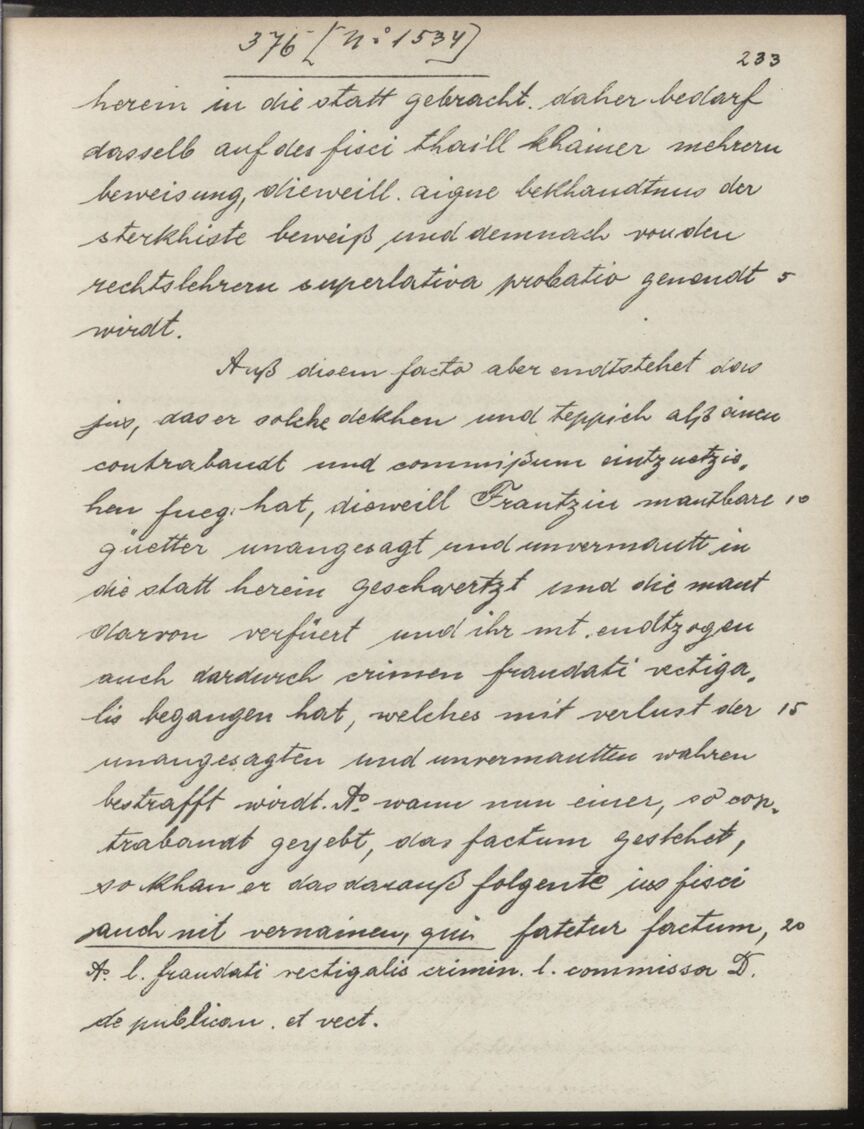 376 [N° 1534]
233
herein in die statt gebracht. daher bedarf
dasselb auf des fisci thaill khainer mehrern
beweisung, dieweill. aigne bekhandtnus der
sterkhiste beweiß und demnach von den
rechtslehrern superlativa probatio genendt 5
wirdt.
Auß disem facto aber endtstehet das
jus, das er solche dekhen und teppich alß ainen
contrabandt und commißum eintzuetzie„
hen fueg. hat, dieweill Frantzin mautbare 10
güetter unangesagt und unvermautt in
die statt herein geschwertzt und die maut
darvon verfüert und ihr mt. endtzogen
auch dardurch crimen fraudati vectiga„
lis begangen hat, welches mit verlust der 15
unangesagten und unvermautten wahren
bestrafft wirdt. A° wann nun einer, so con„
trabandt geyebt, das factum gestehet,
so khan er das darauß folgente ius fisci
auch nit vernainen, qui fatetur factum, 20
A° l. fraudati vectigalis crimin. l. commissa D.
de publican. et vect.